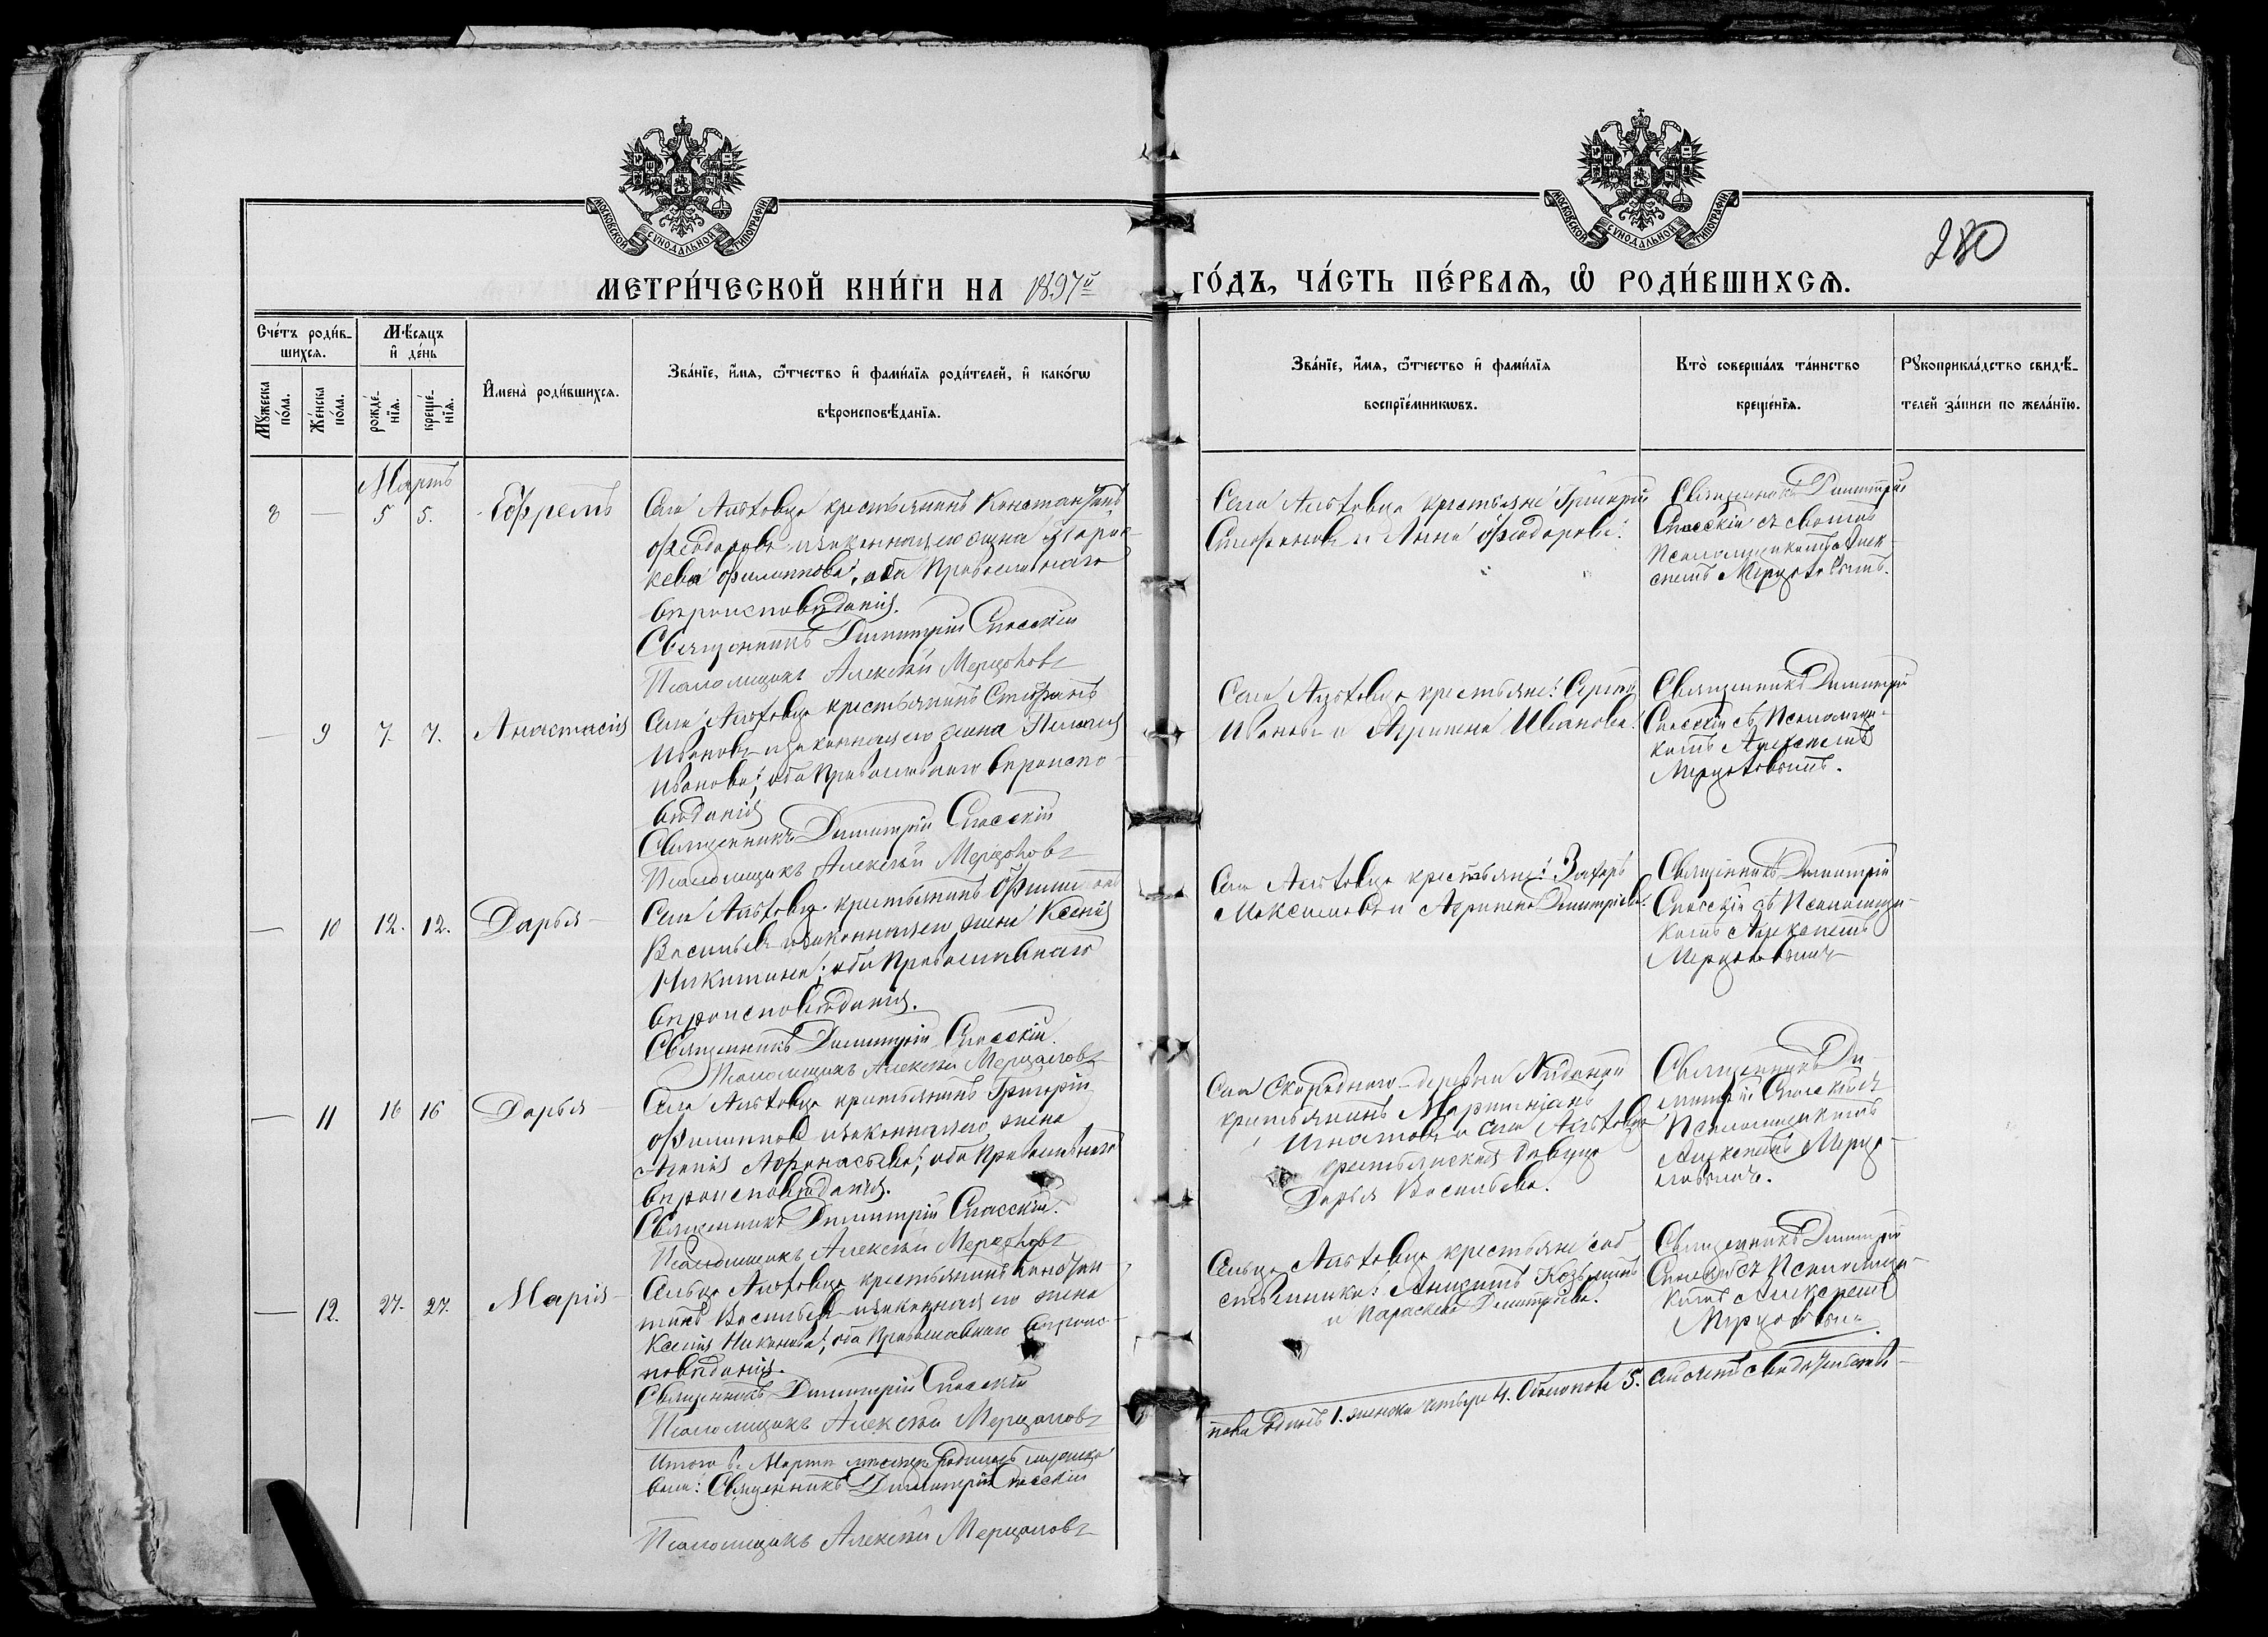 МОСКОВСКОЙ СѴНОДАЛЬНОЙ ТИПОГРАФІИ.
МОСКОВСКОЙ СѴНОДАЛЬНОЙ ТИПОГРАФІИ.
280
МЕТРИ́ЧЕСКОЙ КНИ́ГИ НА 1897й ГО́ДЪ, ЧА́СТЬ ПЕ́РВАѦ, Ѡ РОДИ́ВШИХСѦ.
Сче́тъ роди́в-
шихсѧ.
Мꙋ́жеска по́ла.
Же́нска по́ла.
Мѣ́сѧцъ
и҆ де́нь
рожде́-
нїѧ.
креще́-
нїѧ.
И҆мена̀ роди́вшихсѧ.
Зва́нїе, и҆́мѧ, ѻ҆́тчество и҆ фами́лїѧ роди́телей, и҆ како́гѡ
вѣроисповѣ́данїѧ.
Зва́нїе, и҆́мѧ, ѻ҆́тчество и҆ фами́лїѧ
воспрїе́мникѡвъ.
Кто̀ соверша́лъ та́инство
креще́нїѧ.
Рꙋкоприкла́дство свидѣ́-
телей за́писи по жела́нїю.
Мартъ
8 — 5 5. Ефремъ
Села крестьянинъ Константинъ
Ѳеодоровъ и законная его жена Парас-
кева Филиппова, оба Православнаго
вѣроисповѣданія.
Священникъ Димитрій Спасскій
Псаломщикъ Алексѣй Мерцаловъ
Села крестьяне: Григорій
Стефановъ и Анна Ѳеодорова.
Священникъ Димитрій
Спасскій съ своимъ
Псаломщикомъ Алек-
сѣемъ Мерцаловымъ.
— 9 7. 7. Анастасія
Села крестьянинъ Стефанъ
Ивановъ и законная его жена Пелагія
Иванова; оба Православнаго вѣроиспо-
вѣданія
Священникъ Димитрій Спасскій
Псаломщикъ Алексѣй Мерцаловъ
Села крестьяне: Сергѣй
Ивановъ и Агрипина Иванова.
Священникъ Димитрій
Спасскій съ Псаломщи-
комъ Алексѣемъ
Мерцаловымъ.
— 10 12. 12. Дарья
Села крестьянинъ Филиппъ
Васильевъ и законная его жена Ксенія
Никитина; оба Православнаго
вѣроисповѣданія.
Священникъ Димитрій Спасскій.
Псаломщикъ Алексѣй Мерцаловъ
Села крестьяне: Захаръ
Максимовъ и Агрипина Димитріева.
Священникъ Димитрій
Спасскій съ Псаломщи-
комъ Алексѣемъ
Мерцаловымъ
— 11 16 16 Дарья
Села крестьянинъ Григорій
Филипповъ и законная его жена
Агапія Афанасьева; оба Православнаго
вѣроисповѣданія.
Священникъ Димитрій Спасскій.
Псаломщикъ Алексѣй Мерцаловъ
Села деревни
крестьянинъ
Игнатовъ и села
крестьянская дѣвица
Дарья Васильева.
Священникъ Ди-
митрій Спасскій съ
Псаломщикомъ
Алексѣемъ Мерца-
ловымъ.
— 12. 27. 27. Марія
Сельца крестьянинъ Констан
тинъ Васильевъ и законная его жена
Ксенія; оба Православнаго вѣроис-
повѣданія.
Священникъ Димитрій Спасскій
Псаломщикъ Алексѣй Мерцаловъ
Сельца крестьяне соб
ственники: Козьминъ
и Параскева Димитріева.
Священникъ Димитрій
Спасскій съ Псаломщи-
комъ Алексѣемъ
Мерцаловымъ.
Итого въ Мартѣ мѣсяцѣ родилось мужска
пола Одинъ 1. женска четыре 4. Обоего пола 5.
вали: Священникъ Димитрій Спасскій
Псаломщикъ Алексѣй Мерцаловъ